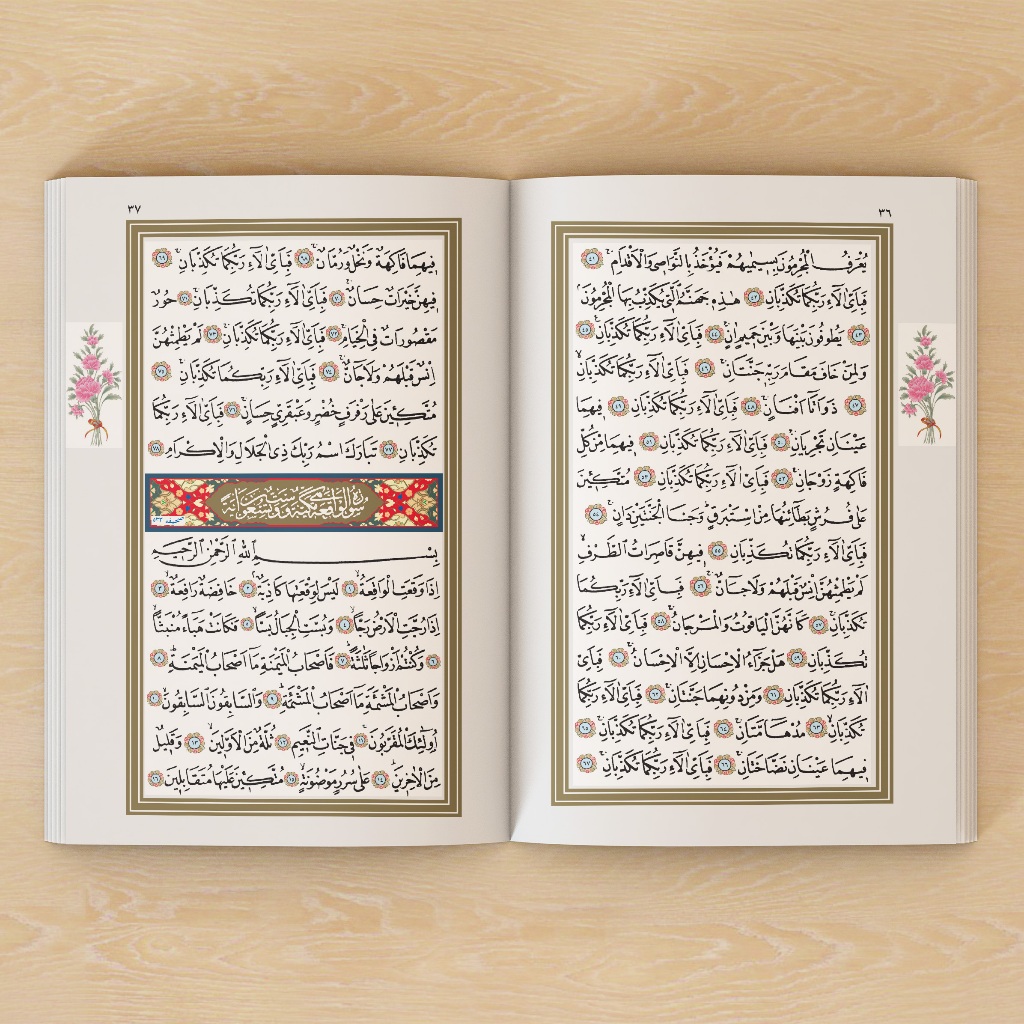 ٣٦
يُعْرَفُ الْمُجْرِمُونَ بِسِيمٰيهُمْ فَيُؤْخَذُ بِالنَّوَاصِي وَالْاَقْدَامِ ﴿٤١﴾
فَبِاَيِّ اٰلَٓاءِ رَبِّكُمَا تُكَذِّبَانِ ﴿٤٢﴾ هٰذِهِ جَهَنَّمُ الَّتِي يُكَذِّبُ بِهَا الْمُجْرِمُونَ
﴿٤٣﴾ يَطُوفُونَ بَيْنَهَا وَبَيْنَ حَمِيمٍ اٰنٍ ﴿٤٤﴾ فَبِاَيِّ اٰلَٓاءِ رَبِّكُمَا تُكَذِّبَانِ ﴿٤٥﴾
وَلِمَنْ خَافَ مَقَامَ رَبِّهِ جَنَّتَانِ ﴿٤٦﴾ فَبِاَيِّ اٰلَٓاءِ رَبِّكُمَا تُكَذِّبَانِ
﴿٤٧﴾ ذَوَاتَٓا اَفْنَانٍ ﴿٤٨﴾ فَبِاَيِّ اٰلَٓاءِ رَبِّكُمَا تُكَذِّبَانِ ﴿٤٩﴾ فِيهِمَا
عَيْنَانِ تَجْرِيَانِ ﴿٥٠﴾ فَبِاَيِّ اٰلَٓاءِ رَبِّكُمَا تُكَذِّبَانِ ﴿٥١﴾ فِيهِمَا مِنْ كُلِّ
فَاكِهَةٍ زَوْجَانِ ﴿٥٢﴾ فَبِاَيِّ اٰلَٓاءِ رَبِّكُمَا تُكَذِّبَانِ ﴿٥٣﴾ مُتَّكِـِٔينَ
عَلٰى فُرُشٍ بَطَٓائِنُهَا مِنْ اِسْتَبْرَقٍ وَجَنَا الْجَنَّتَيْنِ دَانٍ ﴿٥٤﴾
فَبِاَيِّ اٰلَٓاءِ رَبِّكُمَا تُكَذِّبَانِ ﴿٥٥﴾ فِيهِنَّ قَاصِرَاتُ الطَّرْفِ
لَمْ يَطْمِثْهُنَّ اِنْسٌ قَبْلَهُمْ وَلَا جَٓانٌّ ﴿٥٦﴾ فَبِاَيِّ اٰلَٓاءِ رَبِّكُمَا
تُكَذِّبَانِ ﴿٥٧﴾ كَاَنَّهُنَّ الْيَاقُوتُ وَالْمَرْجَانُ ﴿٥٨﴾ فَبِاَيِّ اٰلَٓاءِ رَبِّكُمَا
تُكَذِّبَانِ ﴿٥٩﴾ هَلْ جَزَٓاءُ الْاِحْسَانِ اِلَّا الْاِحْسَانُ ﴿٦٠﴾ فَبِاَيِّ
اٰلَٓاءِ رَبِّكُمَا تُكَذِّبَانِ ﴿٦١﴾ وَمِنْ دُونِهِمَا جَنَّتَانِ ﴿٦٢﴾ فَبِاَيِّ اٰلَٓاءِ رَبِّكُمَا
تُكَذِّبَانِ ﴿٦٣﴾ مُدْهَٓامَّتَانِ ﴿٦٤﴾ فَبِاَيِّ اٰلَٓاءِ رَبِّكُمَا تُكَذِّبَانِ ﴿٦٥﴾
فِيهِمَا عَيْنَانِ نَضَّاخَتَانِ ﴿٦٦﴾ فَبِاَيِّ اٰلَٓاءِ رَبِّكُمَا تُكَذِّبَانِ ﴿٦٧﴾
٣٧
فِيهِمَا فَاكِهَةٌ وَنَخْلٌ وَرُمَّانٌ ﴿٦٨﴾ فَبِاَيِّ اٰلَٓاءِ رَبِّكُمَا تُكَذِّبَانِ ﴿٦٩﴾
فِيهِنَّ خَيْرَاتٌ حِسَانٌ ﴿٧٠﴾ فَبِاَيِّ اٰلَٓاءِ رَبِّكُمَا تُكَذِّبَانِ ﴿٧١﴾ حُورٌ
مَقْصُورَاتٌ فِي الْخِيَامِ ﴿٧٢﴾ فَبِاَيِّ اٰلَٓاءِ رَبِّكُمَا تُكَذِّبَانِ ﴿٧٣﴾ لَمْ يَطْمِثْهُنَّ
اِنْسٌ قَبْلَهُمْ وَلَا جَٓانٌّ ﴿٧٤﴾ فَبِاَيِّ اٰلَٓاءِ رَبِّكُمَا تُكَذِّبَانِ ﴿٧٥﴾
مُتَّكِـِٔينَ عَلٰى رَفْرَفٍ خُضْرٍ وَعَبْقَرِيٍّ حِسَانٍ ﴿٧٦﴾ فَبِاَيِّ اٰلَٓاءِ رَبِّكُمَا
تُكَذِّبَانِ ﴿٧٧﴾ تَبَارَكَ اسْمُ رَبِّكَ ذِي الْجَلَالِ وَالْاِكْرَامِ ﴿٧٨﴾
سُورَةُ الْوَاقِعَةِ مَكِّيَّةٌ وَهِيَ سِتٌّ وَتِسْعُونَ اٰيَةً
بِسْمِ اللّٰهِ الرَّحْمٰنِ الرَّحِيمِ
اِذَا وَقَعَتِ الْوَاقِعَةُ ﴿١﴾ لَيْسَ لِوَقْعَتِهَا كَاذِبَةٌ ﴿٢﴾ خَافِضَةٌ رَافِعَةٌ ﴿٣﴾
اِذَا رُجَّتِ الْاَرْضُ رَجًّا ﴿٤﴾ وَبُسَّتِ الْجِبَالُ بَسًّا ﴿٥﴾ فَكَانَتْ هَبَٓاءً مُنْبَثًّا
﴿٦﴾ وَكُنْتُمْ اَزْوَاجًا ثَلٰثَةً ﴿٧﴾ فَاَصْحَابُ الْمَيْمَنَةِ مَٓا اَصْحَابُ الْمَيْمَنَةِ ﴿٨﴾
وَاَصْحَابُ الْمَشْـَٔمَةِ مَٓا اَصْحَابُ الْمَشْـَٔمَةِ ﴿٩﴾ وَالسَّابِقُونَ السَّابِقُونَ ﴿١٠﴾
اُولٰٓئِكَ الْمُقَرَّبُونَ ﴿١١﴾ فِي جَنَّاتِ النَّعِيمِ ﴿١٢﴾ ثُلَّةٌ مِنَ الْاَوَّلِينَ ﴿١٣﴾ وَقَلِيلٌ
مِنَ الْاٰخِرِينَ ﴿١٤﴾ عَلٰى سُرُرٍ مَوْضُونَةٍ ﴿١٥﴾ مُتَّكِـِٔينَ عَلَيْهَا مُتَقَابِلِينَ ﴿١٦﴾